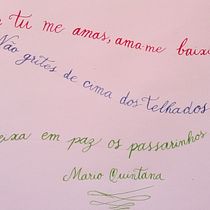 tu me amas, ama-me baixo
Não grites de cima dos telhados
eixa em paz os passarinhos
Mario Quintana